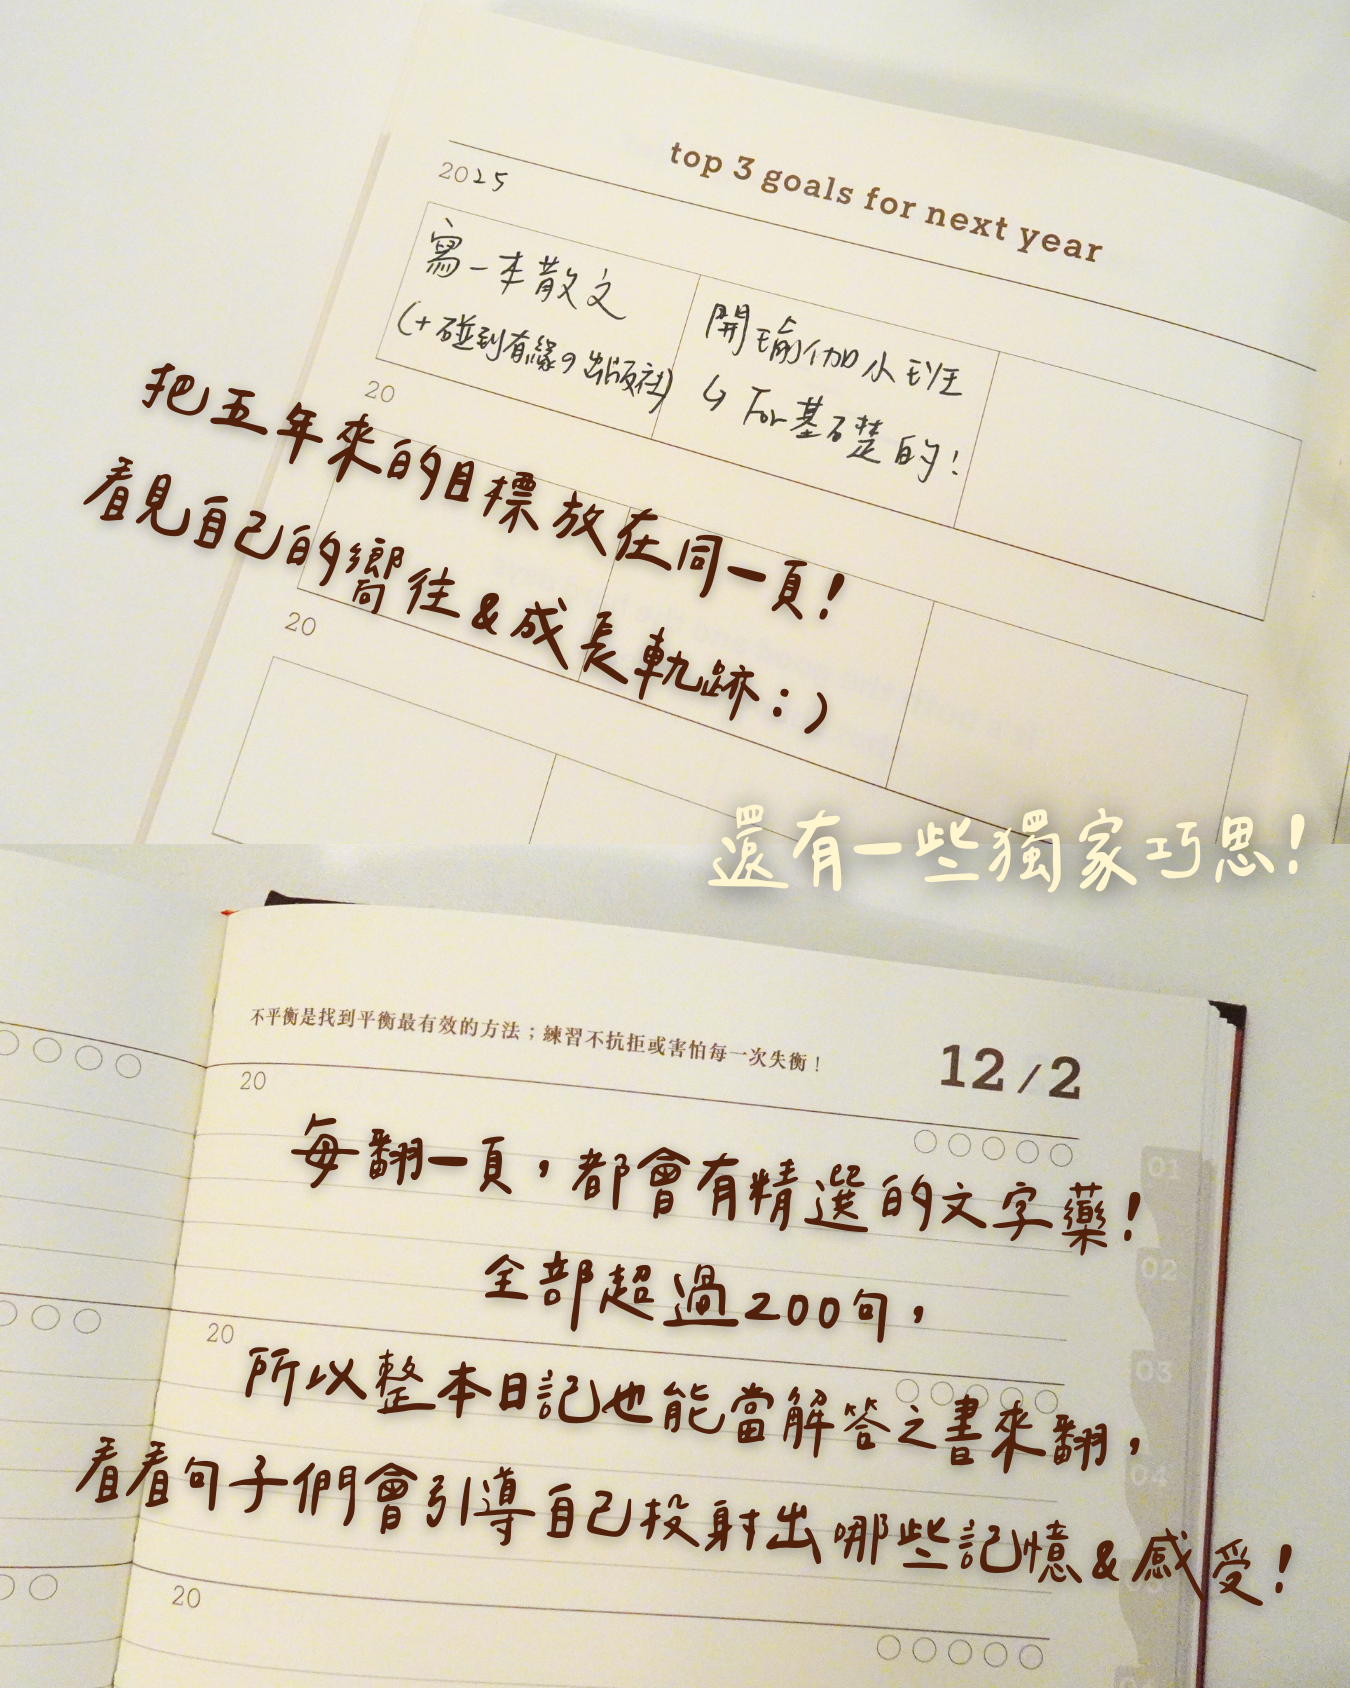 top 3 goals for next year
2025
寫一本散文
(+碰到有緣の出版社)
開瑜伽小班
↳ For基礎的!
20
把五年來的目標放在同一頁!
看見自己的嚮往&成長軌跡:)
20
還有一些獨家巧思!
不平衡是找到平衡最有效的方法；練習不抗拒或害怕每一次失衡！
12/2
20
每翻一頁，都會有精選的文字藥!
01
02
全部超過200句，
20
03
所以整本日記也能當解答之書來翻，
04
看看句子們會引導自己投射出哪些記憶&感受!
20